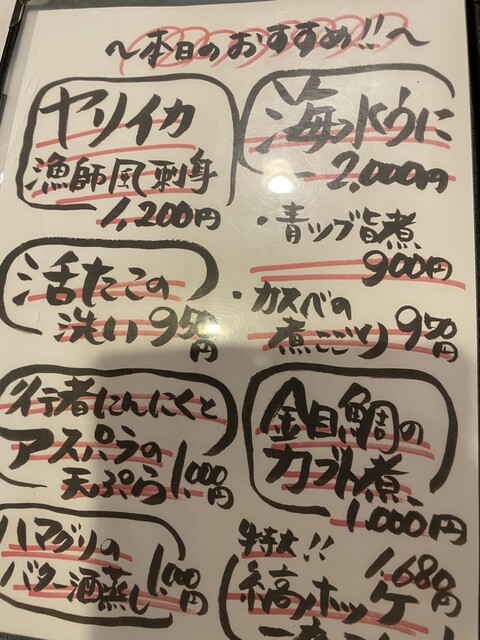 〜本日のおすすめ!!〜
ヤリイカ
漁師風刺身
1,200円
活たこの
洗い 950円
行者にんにくと
アスパラの
天ぷら 1,000円
ハマグリの
バター酒蒸し 1,100円
海水うに
2,000円
・青ツブ旨煮
900円
・カスベの
煮こごり 950円
金目鯛の
カブト煮
1,000円
特大!! 1,680円
縞ホッケ